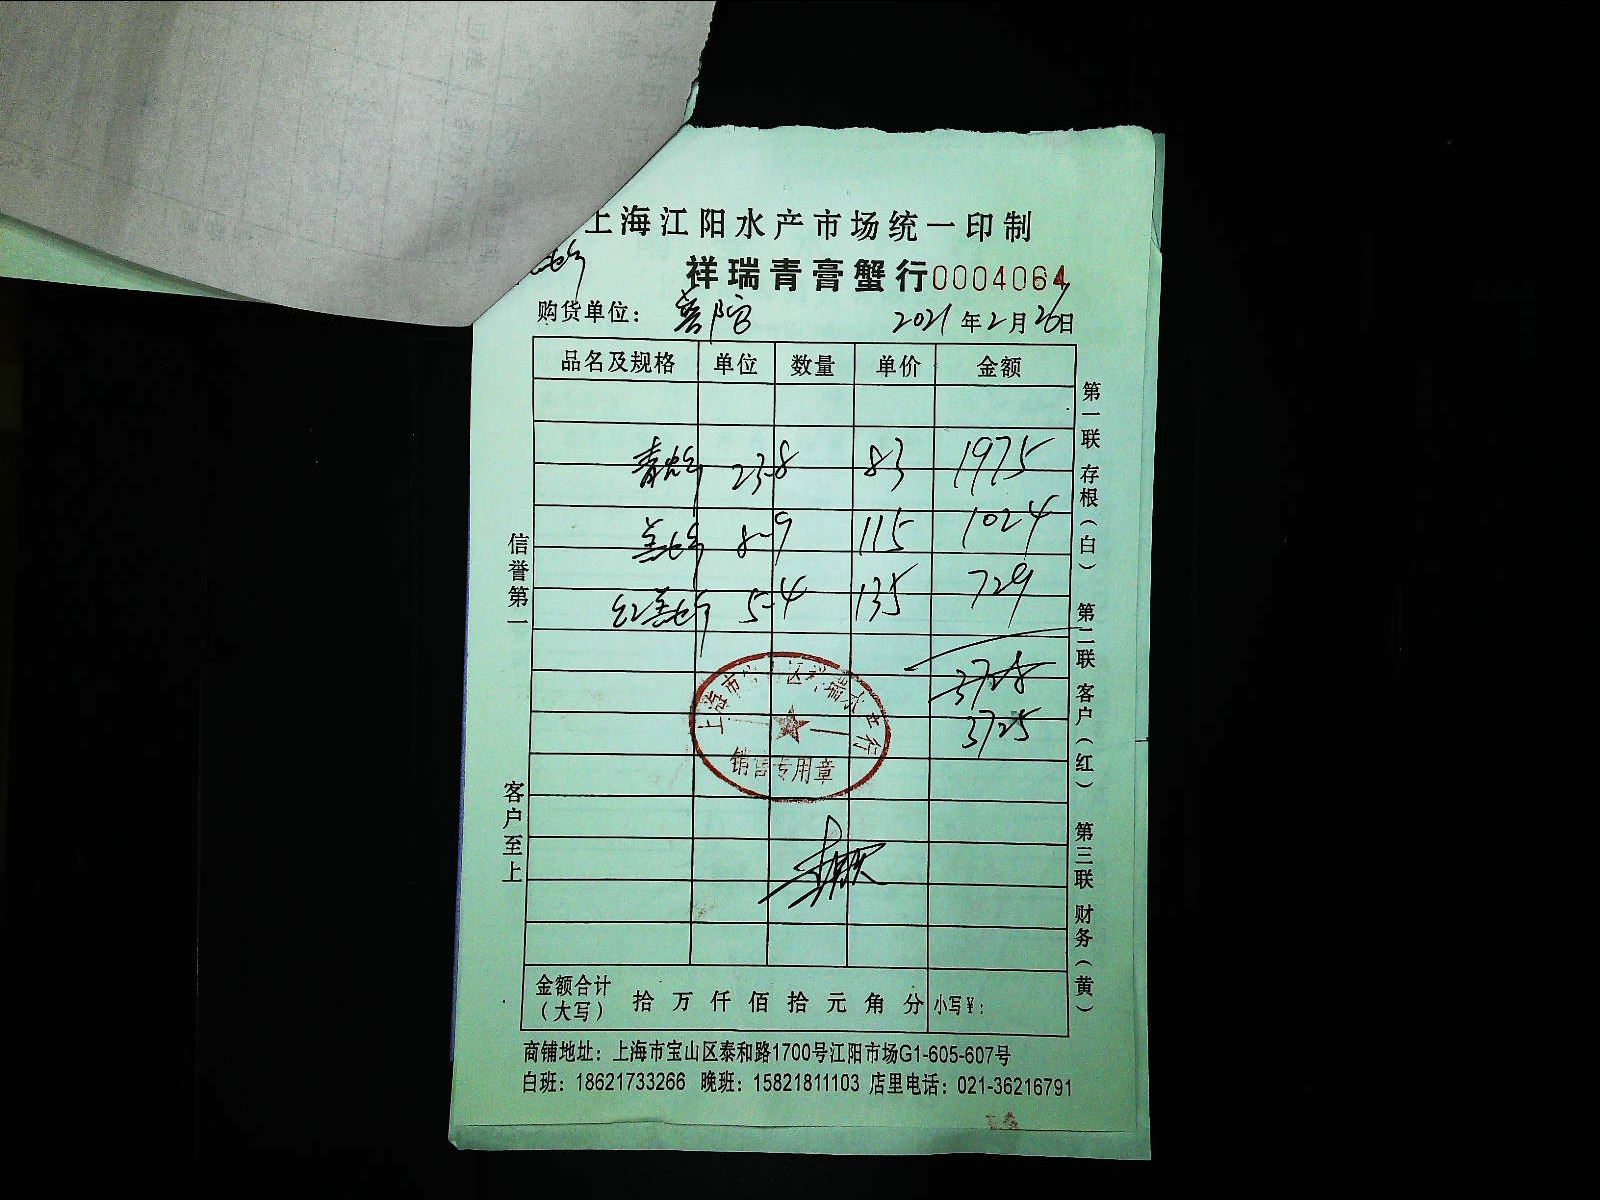 上海江阳水产市场统一印制
祥瑞青膏蟹行0004064
购货单位：
2021年2月26日
品名及规格 单位 数量 单价 金额
青 23-8 83 1975
羔 8-9 115 1024
红羔 5-4 135 729
3728
3725
上海市 区祥瑞水产行
销售专用章
金额合计
（大写） 拾万仟佰拾元角分 小写¥：
商铺地址：上海市宝山区泰和路1700号江阳市场G1-605-607号
白班：18621733266 晚班：15821811103 店里电话：021-36216791
信誉第一
客户至上
第一联 存根（白） 第二联 客户（红） 第三联 财务（黄）